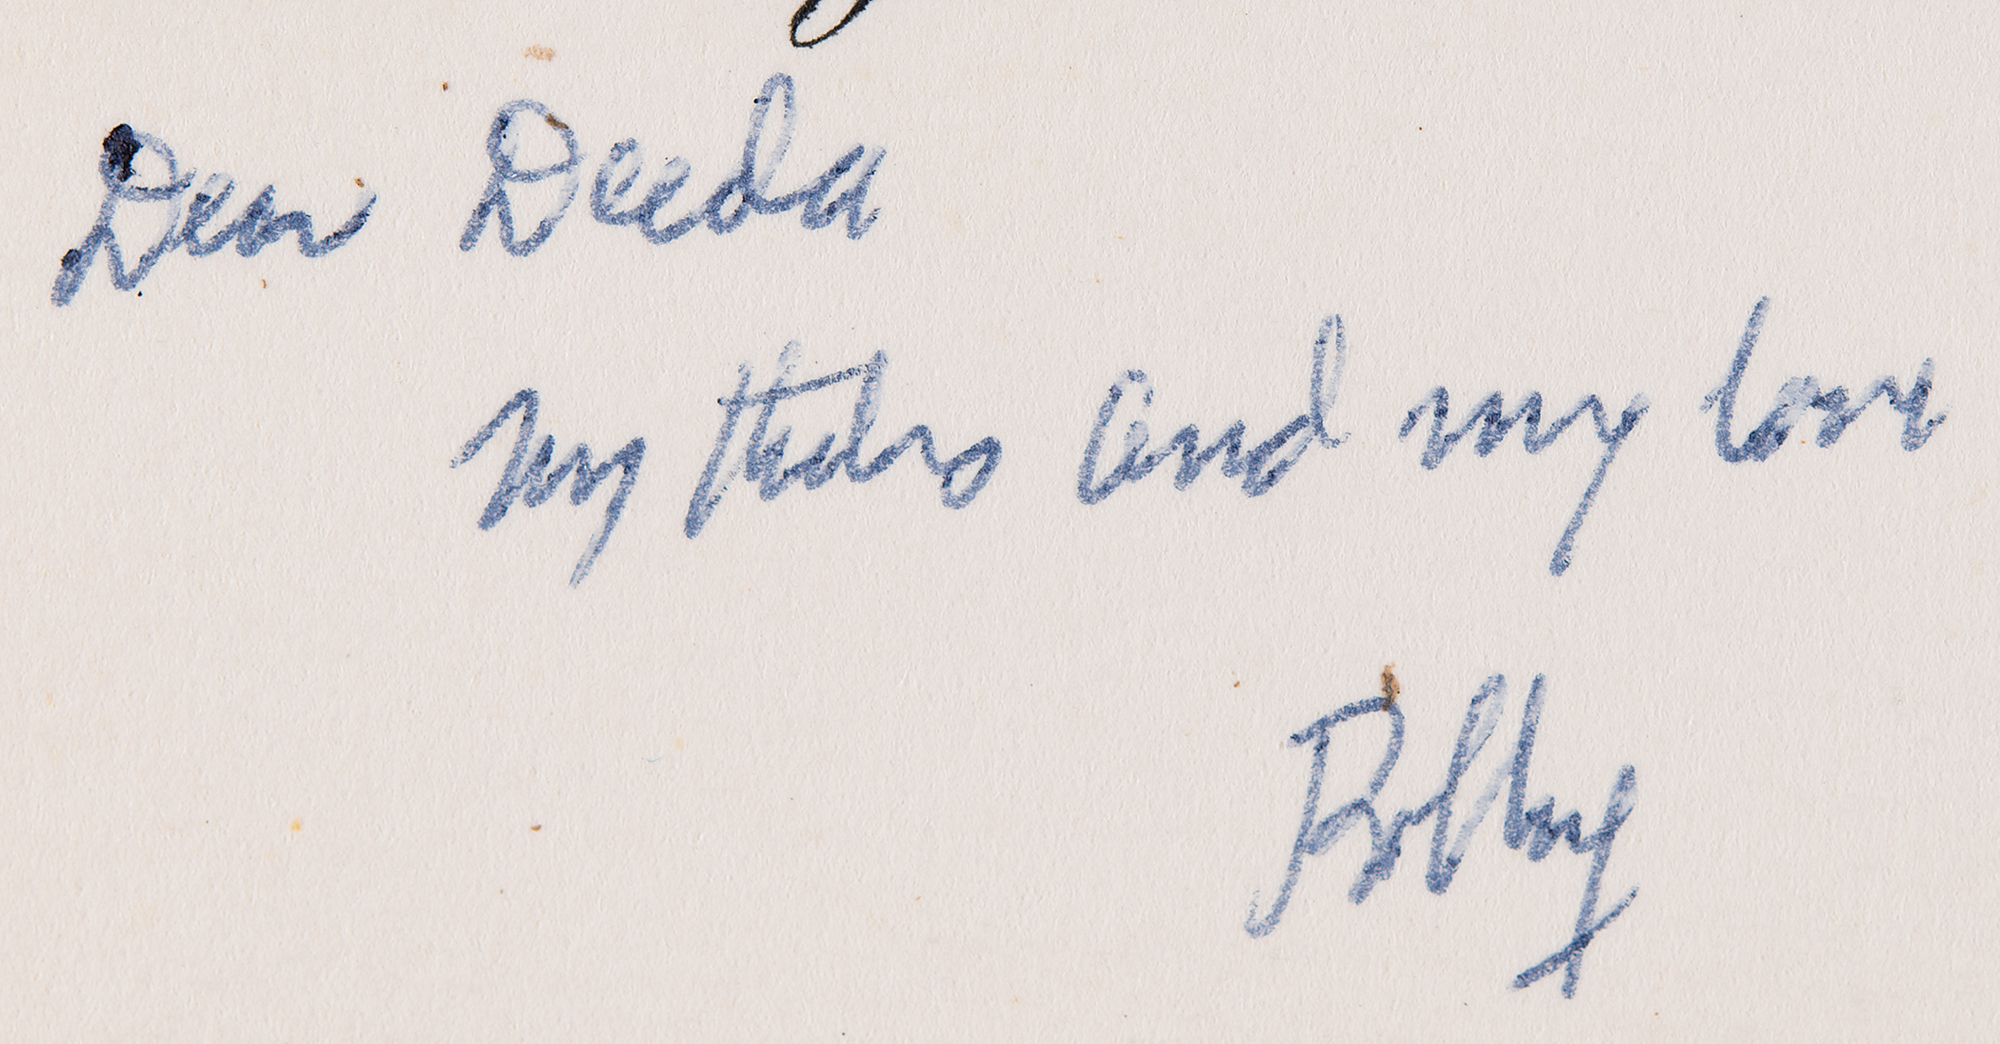 Dear Deeda
My thanks and my love
Bobby